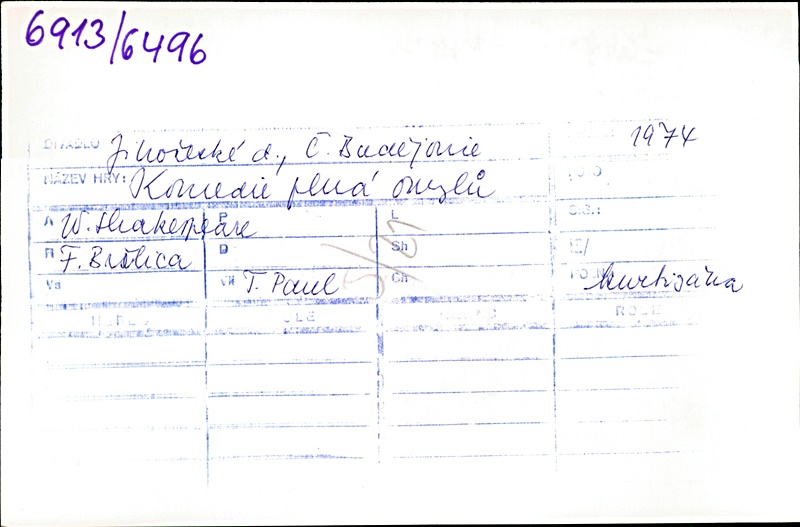 6913/6496
DIVADLO Jihočeské d., Č. Budějovice 1974
NÁZEV HRY: Komedie plná omylů
A W. Shakespeare P L
R F. Brůlica D Sh
Vs VK T. Paul Ch kurtizána
HEREC ROLE ROLE